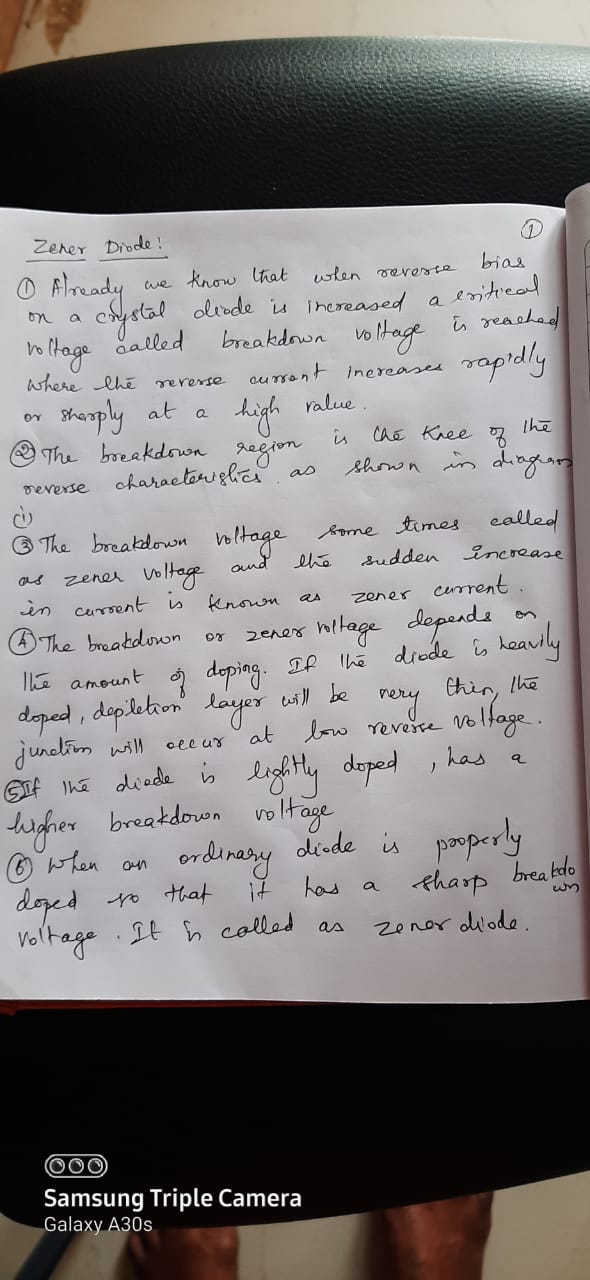 ①
Zener Diode:
① Already we know that when reverse bias
on a crystal diode is increased a critical
voltage called breakdown voltage is reached
where the reverse current increases rapidly
or sharply at a high value.
② The breakdown region is the knee of the
reverse characteristics. as shown in diagram
(i)
③ The breakdown voltage some times called
as zener voltage and the sudden increase
in current is known as zener current.
④ The breakdown or zener voltage depends on
the amount of doping. If the diode is heavily
doped, depletion layer will be very thin, the
junction will occur at low reverse voltage.
⑤ If the diode is lightly doped, has a
higher breakdown voltage
⑥ When an ordinary diode is pooperly
doped so that it has a sharp breakdo
wn
voltage. It is called as zener diode.
Samsung Triple Camera
Galaxy A30s